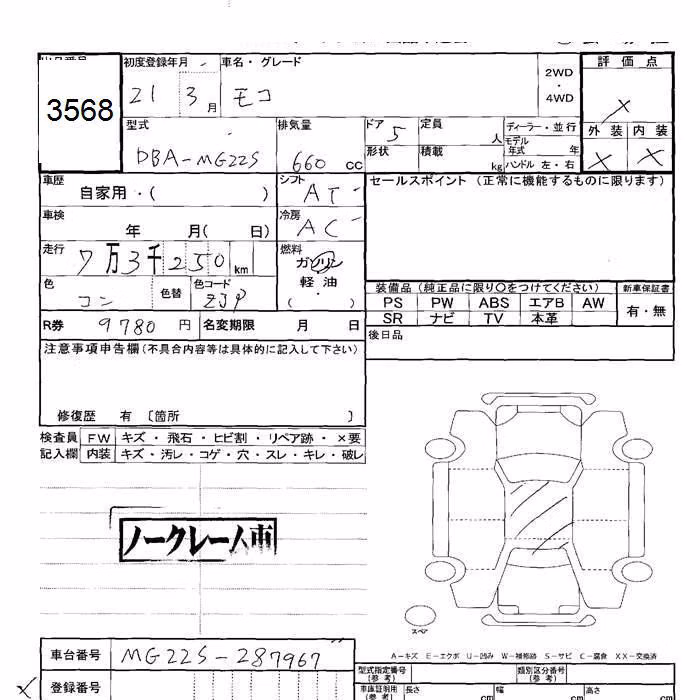 3568
初度登録年月
車名・グレード
21 3月
モコ
2WD
・
4WD
評価点
×
外装 内装
× ×
型式
DBA-MG22S
排気量
660 cc
ドア 5
形状
定員 人
積載 kg
ディーラー・並行
モデル年式 年
ハンドル 左・右
車歴
自家用・( )
シフト
AT
セールスポイント (正常に機能するものに限ります)
車検
年 月( 日)
冷房
AC
走行
7万3千250 km
燃料
ガソリン
軽油
・
( )
色
コン
色替
色コード
ZJP
装備品 (純正品に限り○をつけてください)
新車保証書
PS PW ABS エアB AW
SR ナビ TV 本革
有・無
R券 9780 円
名変期限 月 日
後日品
注意事項申告欄(不具合内容等は具体的に記入して下さい)
修復歴 有 〔箇所 〕
検査員 FW キズ・飛石・ヒビ割・リペア跡・×要
記入欄 内装 キズ・汚レ・コゲ・穴・スレ・キレ・破レ
ノークレーム車
スペア
A-キズ E-エクボ U-凹み W-補修跡 S-サビ C-腐食 XX-交換済
車台番号 MG22S-287967
型式指定番号(参考)
類別区分番号(参考)
× 登録番号
車庫証明用(参考)
長さ cm
幅 cm
高さ cm